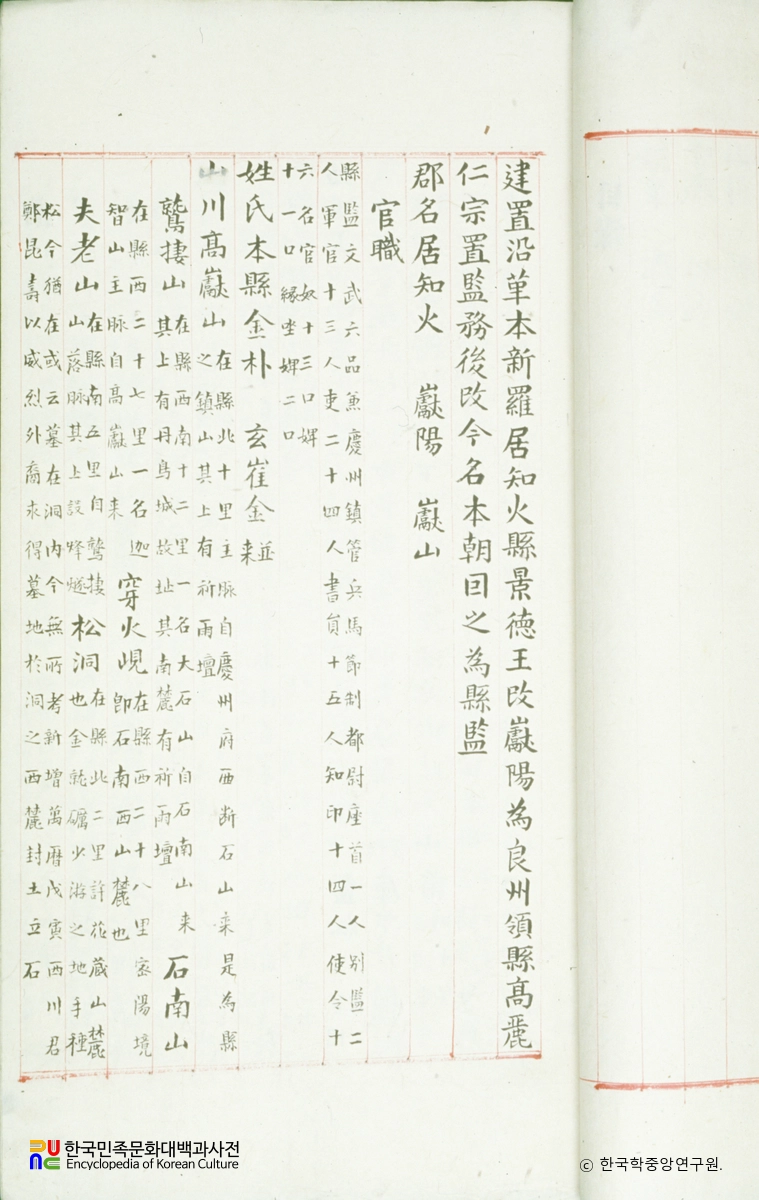 建置沿革本新羅居知火縣景德王改巘陽為良州領縣高麗
仁宗置監務後改今名本朝因之為縣監
郡名居知火 巘陽 巘山
官職
縣監文武六品兼慶州鎮管兵馬節制都尉座首一人別監二
人軍官十三人吏二十四人書員十五人知印十四人使令十
六名官奴十三口婢
十一口緣坐婢二口
姓氏本縣金朴 玄崔金並來
山川高巘山在縣北十里主脈自慶州府西断石山来是為縣
之鎮山其上有祈雨壇
鷲捿山在縣西南十二里一名大石山自石南山来
其上有丹鳥城故址其南麓有祈雨壇
石南山
在縣西二十七里一名迦
智山主脉自高巘山来
穿火峴在縣西二十八里密陽境
即石南西山麓也
夫老山在縣南五里自鷲棲
山落脉其上設烽燧
松洞在縣北二里許花蔵山麓
也金乾礪少游之地手種
松今猶在或云墓在洞内今無所考新增萬曆戊寅西川君
鄭昆壽以威烈外裔求得墓地於洞之西麓封土立石
한국민족문화대백과사전
Encyclopedia of Korean Culture
© 한국학중앙연구원.